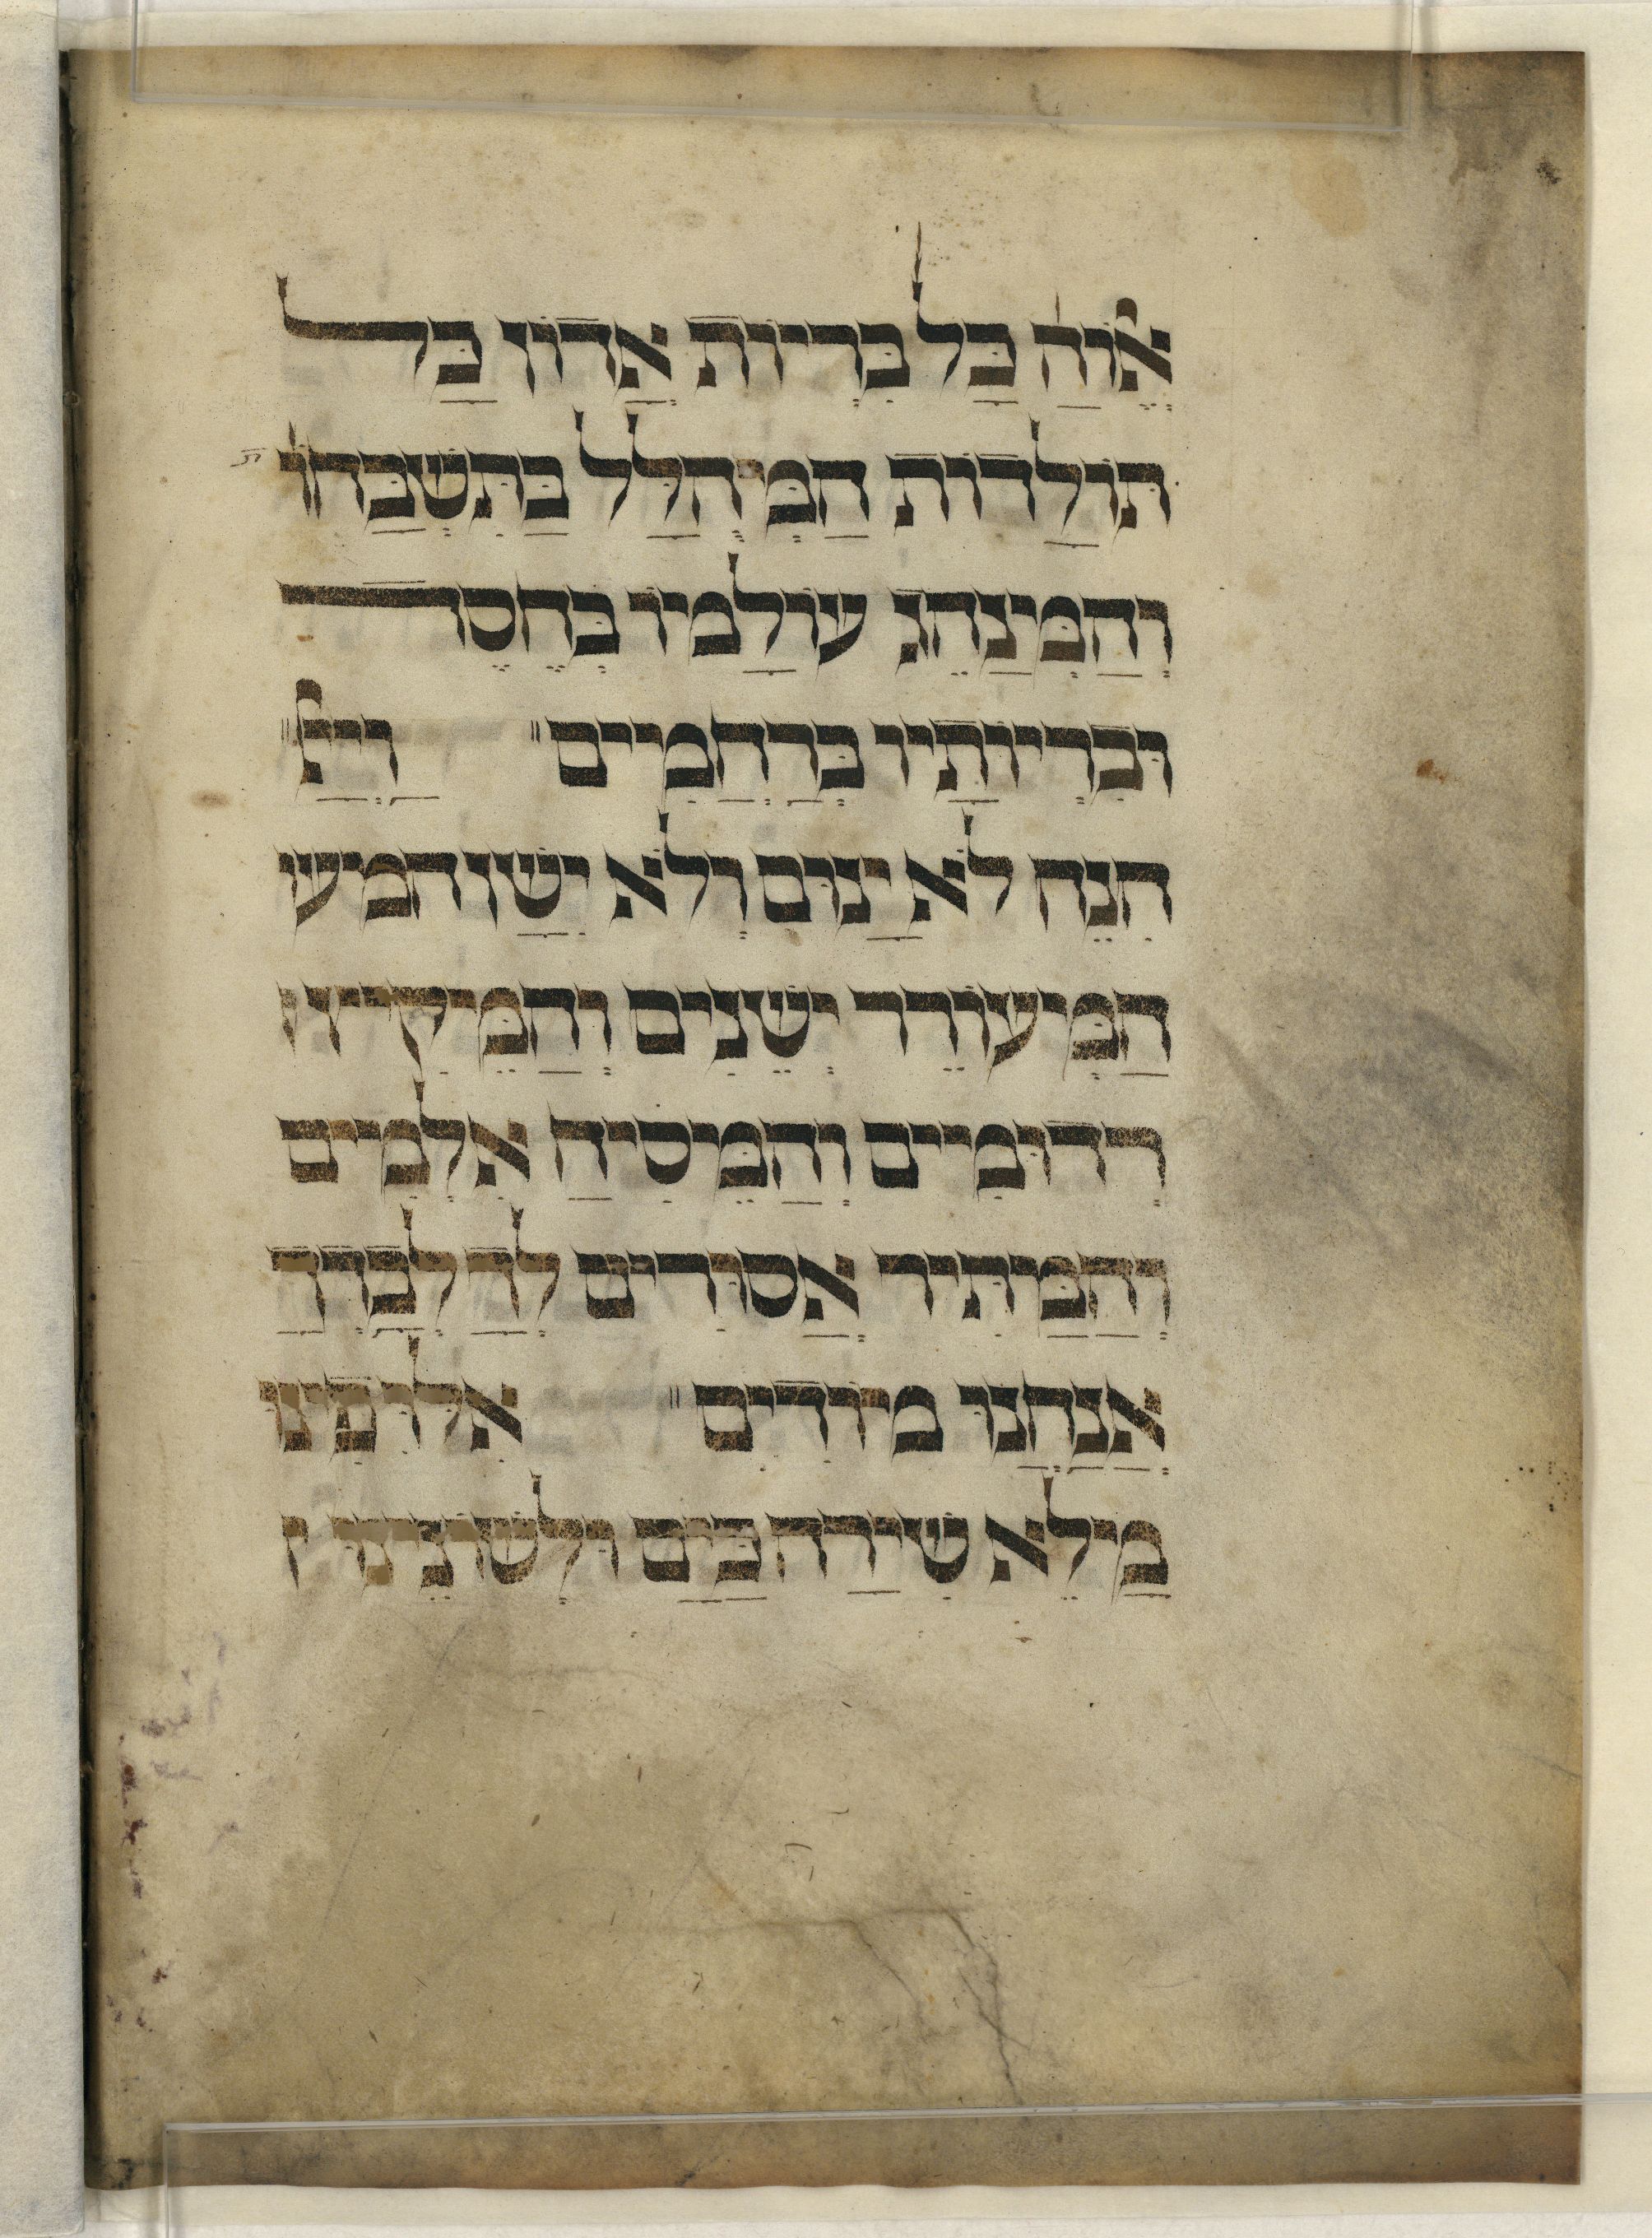 אֱלוֹהַּ כָּל בְּרִיוֹת אֲדוֹן כָּל
תּוֹלָדוֹת הַמְיהֻלָּל בַּתִּשְׁבָּחוֹ ת
וְהַמְינַהֵג עוֹלָמוֹ בְּחֶסֶד
וּבְרִיוֹתָיו בְּרַחֲמִים וַיְיָ
הִנֵּה לֹא יָנוּם וְלֹא יִשָׁן המיעו
הַמְּיעוֹרֵר יְשֵׁנִים וְהַמֵּיקִיץ
רְדוּמִים וְהַמֵּסִיחַ אִלְּמִים
וְהַמַּתִּיר אֲסוּרִים לְךָ לְבַדְּךָ
אֲנַחְנוּ מוֹדִים אִלּוּ פִינוּ
מָלֵא שִׁירָה כַּיָּם וּלְשׁוֹנֵינוּ